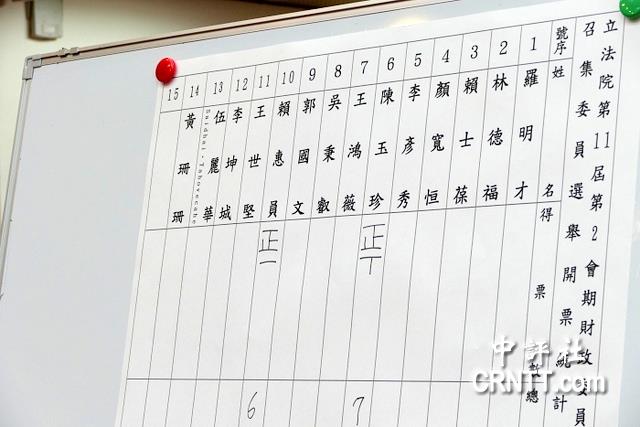 立法院第11屆第2會期財政委員
召集委員選舉開票統計
號序 姓名 得票數 總
1 羅明才
2 林德福
3 賴士葆
4 顏寬恒
5 李彥秀
6 陳玉珍
7 王鴻薇 正丅 7
8 吳秉叡
9 郭國文
10 賴惠員
11 王世堅 正一 6
12 李坤城
13 伍麗華 Saidhai‧Tahovecahe
14 黃珊珊
15
中評社
CRNTT.com